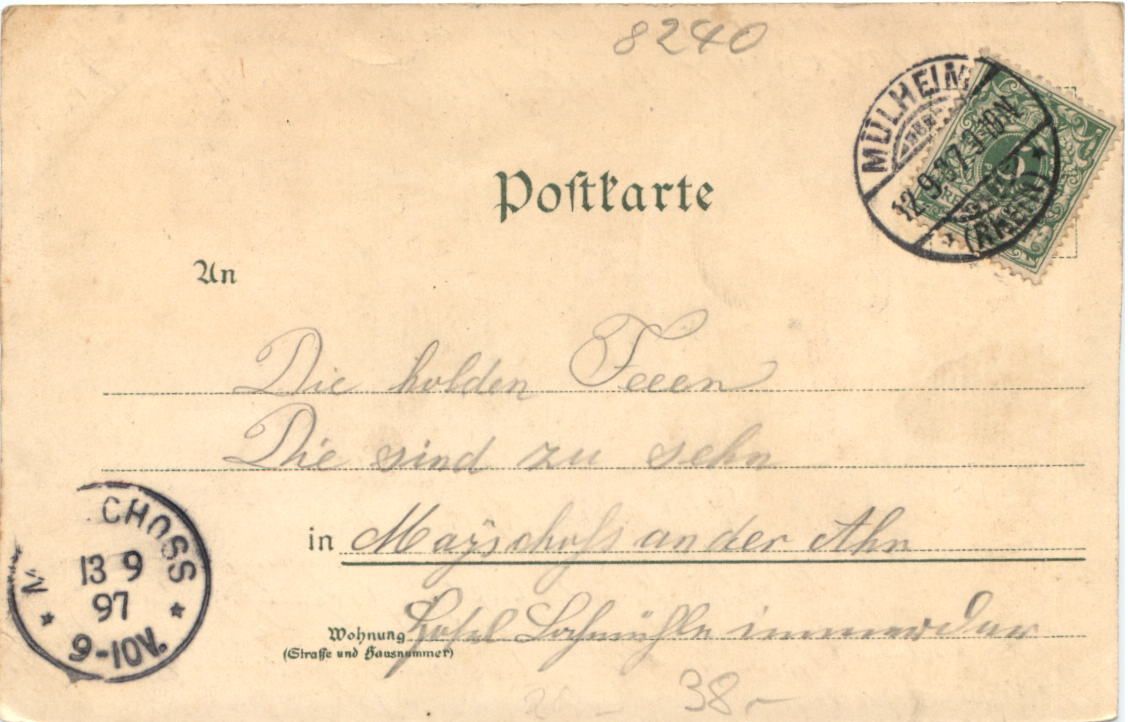 8240
MÜLHEIM
12.9.97. 9-10N.
(RHEIN)
Postkarte
An
Die holden Feeen
Die sind zu sehn
in Mayschoss an der Ahr
Wohnung Hotel Lochmühle immerdar
(Straße und Hausnummer)
M CHOSS
13 9
97
9-10V.
38-